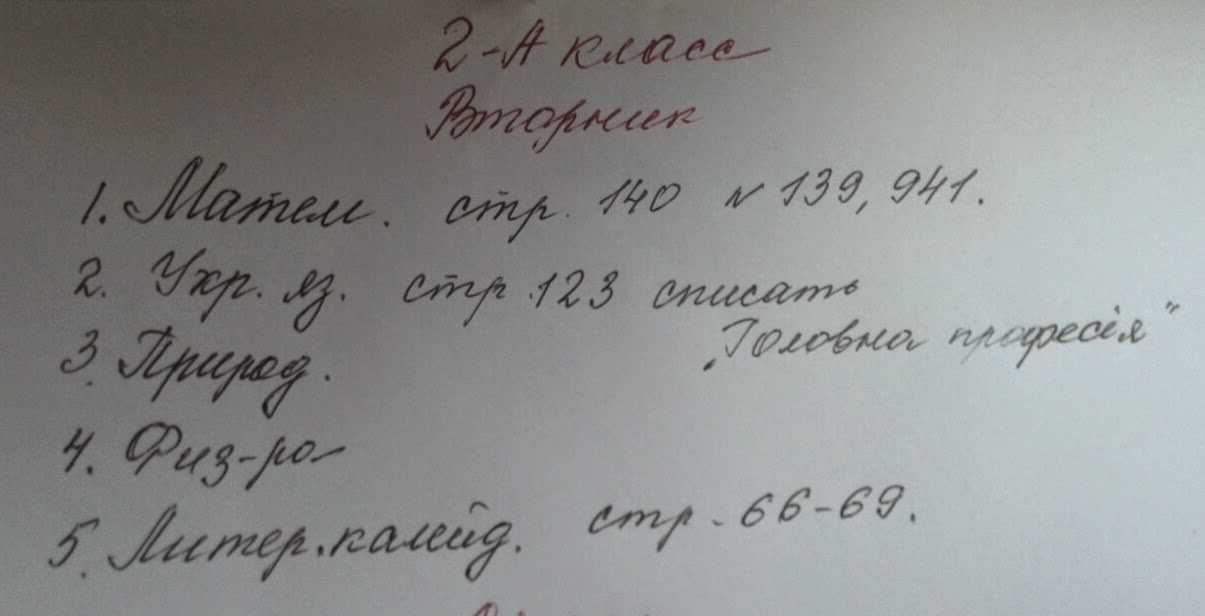 2-А класс
Вторник
1. Матем. стр. 140 № 139, 941.
2. Укр. яз. стр. 123 списать
„Головна професія"
3. Природ.
4. Физ-ра
5. Литер. калейд. стр. 66-69.